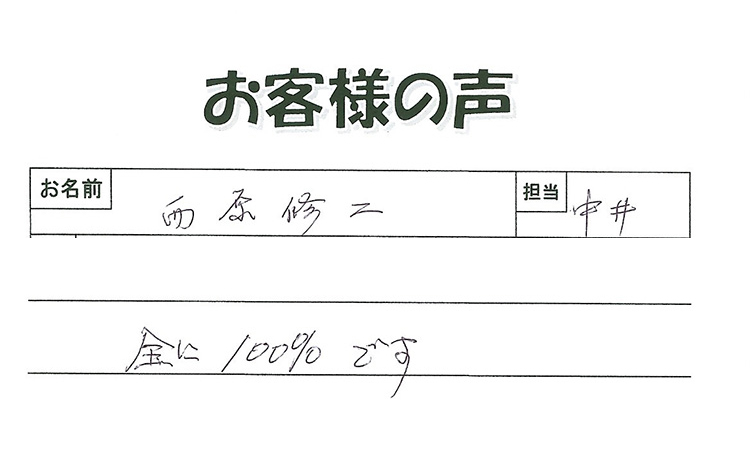 お客様の声
お名前 西原修二 担当 中井
全に 100% です